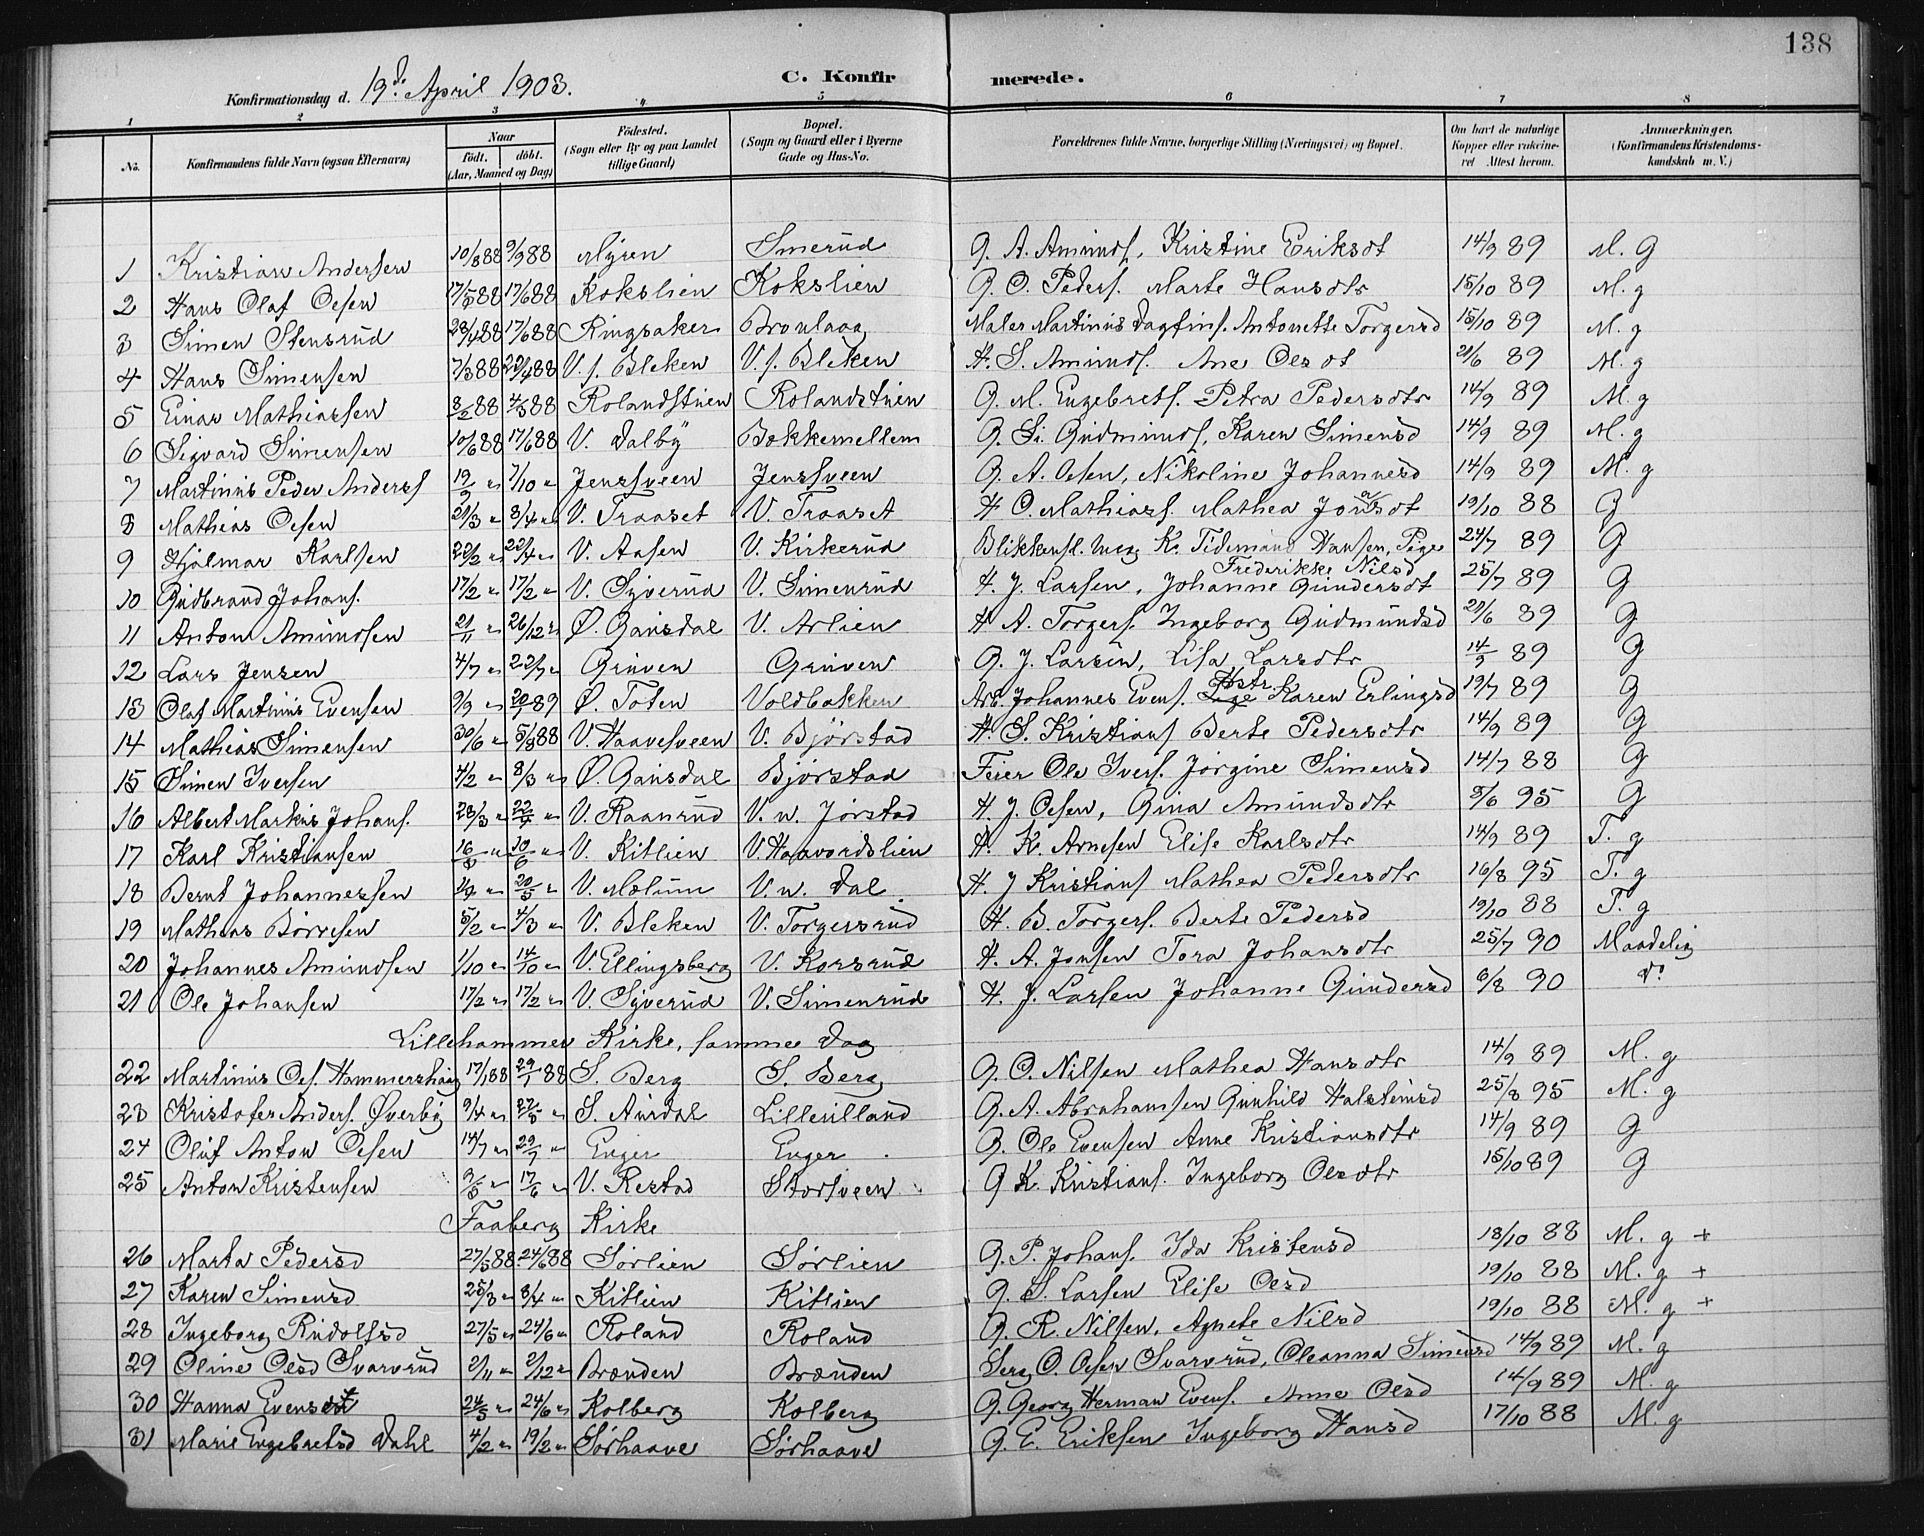 138
Konfirmationsdag d. 19de April 1903. C. Konfirmerede.
1 2 3 4 5 6 7 8
No. Konfirmandens fulde Navn (ogsaa Efternavn) Naar födt. döbt. (Aar, Maaned og Dag) Födested. (Sogn eller By og paa Landet tillige Gaard) Bopæl. (Sogn og Gaard eller i Byerne Gade og Hus-No. Forældrenes fulde Navne, borgerlige Stilling (Næringsvei) og Bopæl. Om havt de naturlige Kopper eller vaccineret Attest herom. Anmærkninger. (Konfirmandens Kristendomskundskab m. V.)
1 Kristian Andersen 10/8 88 9/9 88 Myren Smerud G. A. Amunds. Kristine Eriksdt 14/9 89 M. g
2 Hans Olaf Olsen 17/5 88 17/6 88 Kokslien Kokslien G. O. Peders. Marte Hansdtr 15/10 89 M. g
3 Simen Stensrud 28/4 88 17/6 88 Ringsaker Maler Martinus Dagfins. Antonette Torgersd 15/10 89 M. g
4 Hans Simensen 7/3 88 22/4 88 V. s. Bleken V. s. Bleken H. S. Amunds. Ane Olsdt 21/6 89 M. g
5 Einar Mathiassen 8/2 88 4/3 88 Rolandstuen Rolandstuen G. M. Engebrets. Petra Pedersdtr 14/9 89 M. g
6 Sigvard Simensen 10/6 88 17/6 88 V. Dalby Bækkemellem G. Si. Gudmunds. Karen Simensd 14/9 89 M. g
7 Martinus Peder Anders. 19/9 " 7/10 " Jenssveen Jenssveen G. A. Olsen, Nikoline Johannesd 14/9 89 M. g
8 Mathias Olsen 21/3 " 8/4 " V. Traaset V. Traaset H. O. Mathias. Mathea Jonsdt 19/10 88 G
9 Hjalmar Karlsen 22/2 " 22/4 " V. Aasen V. Kirkerud Blikkensl. K. Tidemand Hansen, Pige Frederikke Nilsd 24/7 89 G
10 Gudbrand Johans. 17/2 " 17/2 " V. Syverud V. Simenrud H. J. Larsen, Johanne Gundersdt 25/7 89 G
11 Anton Amundsen 21/11 " 26/12 " Ø. Gausdal V. Arlien H. A. Torgers. Ingeborg Gudmundsd 21/6 89 G
12 Lars Jensen 4/7 " 22/7 " Gruven Gruven G. J. Larsen, Lisa Larsdtr 14/9 89 G
13 Olaf Martinus Evensen 9/9 " 20/1 89 Ø. Toten Voldbakken Arb. Johannes Evens. Hstr Karen Erlingsd 19/7 89 G
14 Mathias Simensen 30/6 " 5/8 88 V. Haavesveen V. Bjørstad H. S. Kristians Berte Pedersdtr 14/9 89 G
15 Simen Iversen 4/2 " 8/3 " Ø. Gausdal Bjørstad Feier Ole Ivers. Jørgine Simensd 14/7 88 G
16 Albert Markus Johans. 28/3 " 22/4 " V. Raanrud V. n. Jørstad H. J. Olsen, Gina Amundsdtr 8/6 95 G
17 Karl Kristiansen 16/5 " 10/6 " V. Kitlien V. Haavordslien H. K. Arnesen Elise Karlsdtr 14/9 89 T. g
18 Bernt Johannessen " 20/5 " V. Mælum V. n. Dal H. J. Kristians Mathea Pedersdtr 16/8 95 T. g
19 Mathias Børresen 5/2 " 4/3 " V. Bleken V. Torgersrud H. B. Torgers. Berte Pedersd 19/10 88 T. g
20 Johannes Amundsen 1/10 " 14/10 " V. Ellingsberg V. Korsrud H. A. Jonsen Tora Johansdtr 25/7 90 Maadelig
21 Ole Johansen 17/2 " 17/2 " V. Syverud V. Simenrud H. J. Larsen Johanne Gundersd 8/8 90 do
Lillehammer Kirke, samme Dag
22 Martinus Ols. Hammershaug 17/1 88 29/1 88 S. Berg S. Berg G. O. Nilsen Mathea Hansdtr 14/9 89 M. g
23 Kristofer Anders. Øverby 9/4 " 27/5 " S. Aurdal Lillerilland G. A. Abrahamsen Gunhild Halsteinsd 25/8 95 M. g
24 Oluf Anton Olsen 14/7 " 29/7 " Enger Enger G. Ole Evensen Anne Kristiansdtr 14/9 89 G
25 Anton Kristensen 3/5 " 17/6 " V. Restad Storsveen G. K. Kristians. Ingeborg Olsdtr 15/10 89 G
Faaberg Kirke
26 Marta Pedersd 27/5 88 24/6 88 Sørlien Sørlien G. P. Johans. Ida Kristensd 18/10 88 M. g +
27 Karen Simensd 25/3 " 8/4 " Kitlien Kitlien G. S. Larsen Elise Olsd 19/10 88 M. g +
28 Ingeborg Rudolfsd 27/5 " 24/6 " Roland Roland G. R. Nilsen, Agnete Nilsd 19/10 88 M. g +
29 Oline Olsd Svarvrud 2/11 " 2/12 " Brænden Brænden Serg. O. Olsen Svarvrud, Oleanna Simensd 14/9 89 M. g
30 Hanna Evensdt 24/5 " 24/6 " Kolberg Kolberg G. Georg Herman Evens. Anne Olsd 14/9 89 M. g
31 Marie Engebretsd Dahl 4/2 " 19/2 " Sørhaave Sørhaave G. E. Eriksen Ingeborg Hansd 17/10 88 M. g